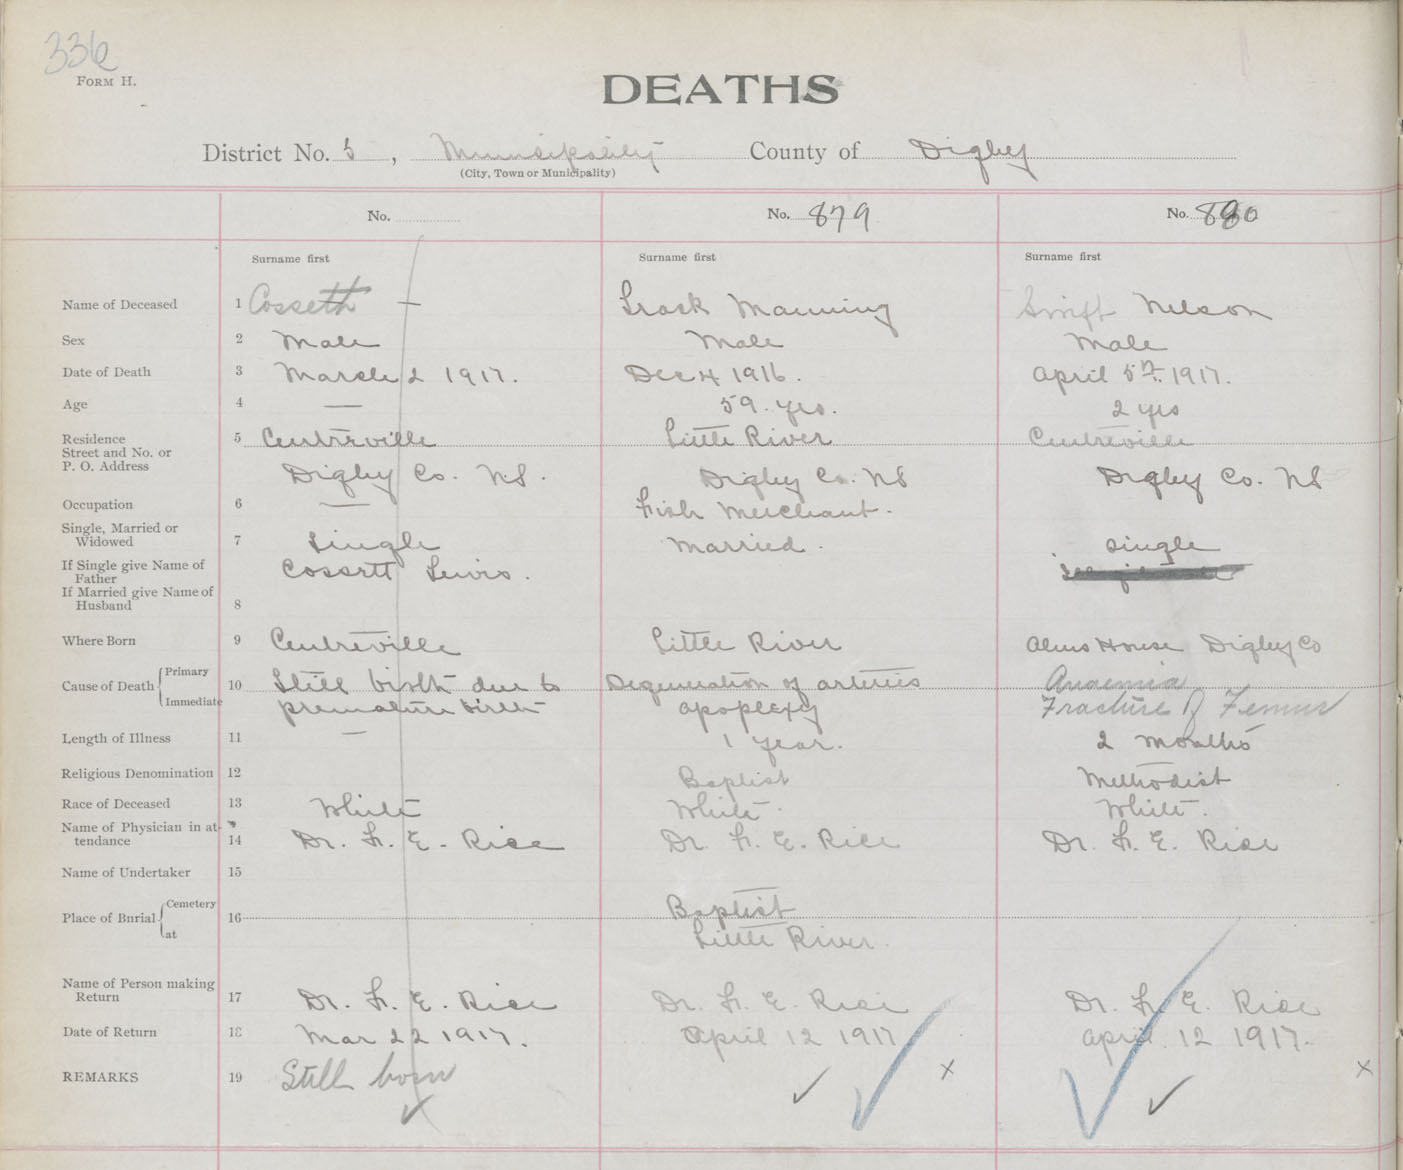 336
FORM H.
DEATHS
District No. 5, Municipality County of Digby
(City, Town or Municipality)
No. No. 879 No. 880
Surname first Surname first Surname first
Name of Deceased 1 Cossett — Trask Manning Swift Nelson
Sex 2 Male Male Male
Date of Death 3 March 2 1917. Dec 4 1916. April 5th. 1917.
Age 4 — 59. yrs. 2 yrs
Residence 5 Centreville Little River Centreville
Street and No. or
P. O. Address Digby Co. N.S. Digby Co. NS Digby Co. NS
Occupation 6 — Fish Merchant.
Single, Married or
Widowed 7 Single Married. Single
If Single give Name of
Father Cossett Lewis.
If Married give Name of
Husband 8
Where Born 9 Centreville Little River Alms House Digby Co
Cause of Death Primary 10 Still birth due to Degeneration of arteries Anaemia
Immediate premature birth apoplexy Fracture of Femur
Length of Illness 11 — 1 year. 2 months
Religious Denomination 12 Baptist Methodist
Race of Deceased 13 White White. White.
Name of Physician in at-
tendance 14 Dr. F. E. Rice Dr. F. E. Rice Dr. F. E. Rice
Name of Undertaker 15
Place of Burial Cemetery 16 Baptist
at Little River.
Name of Person making
Return 17 Dr. F. E. Rice Dr. F. E. Rice Dr. F. E. Rice
Date of Return 18 Mar 22 1917. April 12 1917 April 12 1917.
REMARKS 19 Still born x x